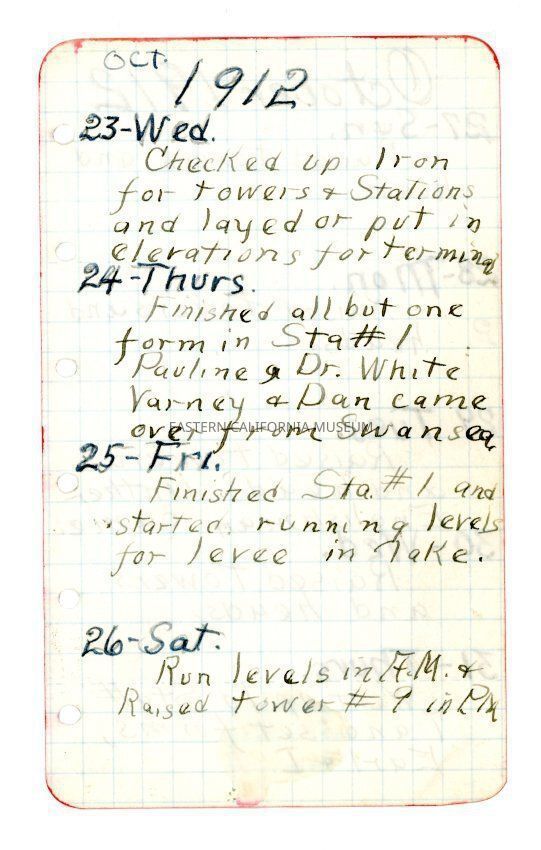 Oct.
1912
23-Wed.
Checked up Iron
for towers & Stations
and layed or put in
elevations for terminal
24-Thurs.
Finished all but one
form in Sta #1
Pauline & Dr. White
Varney & Dan came
over from Swansea,
EASTERN CALIFORNIA MUSEUM
25-Fri.
Finished Sta. #1 and
started running levels
for levee in lake.
26-Sat.
Run levels in A.M. &
Raised tower #9 in P.M